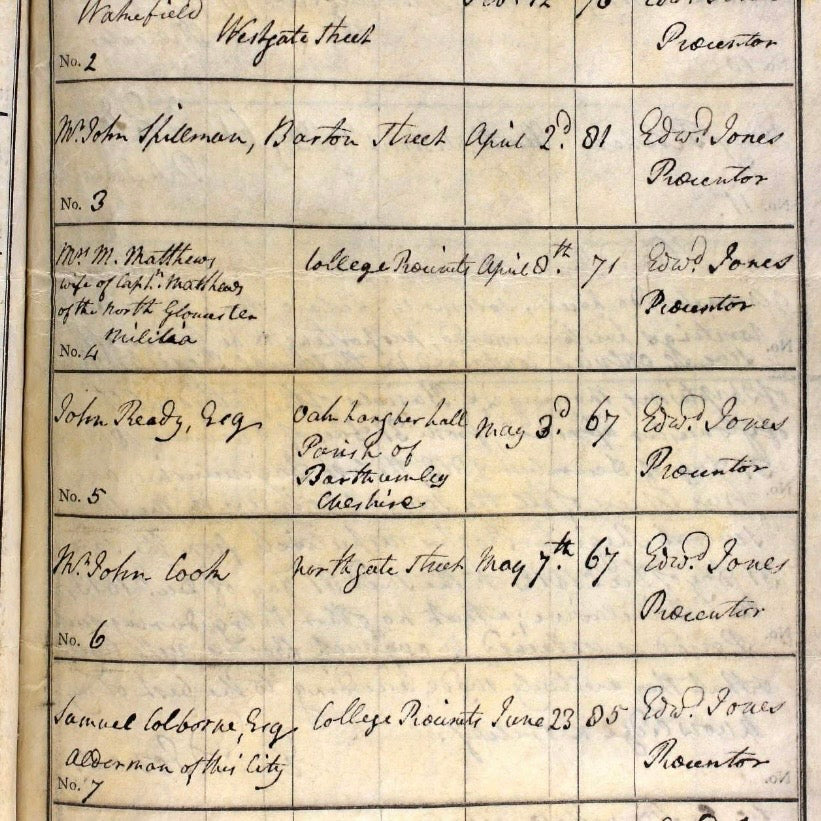 Wakefield
Westgate Street
Precentor
No. 2
Mr. John Spillman, Barton Street April 2d. 81 Edwd. Jones
Precentor
No. 3
Mrs M. Matthews
wife of Captn. Matthews
of the North Gloucester
Militia
College Precincts April 8th. 71 Edwd Jones
Precentor
No. 4
John Ready, Esq
Oakhangher hall
Parish of
Barthumley
Cheshire
May 3d. 67 Edwd. Jones
Precentor
No. 5
Mr. John Cook Northgate Street May 7th. 67 Edwd. Jones
Precentor
No. 6
Samuel Colborne, Esq
Alderman of this City
College Precincts June 23 85 Edwd. Jones
Precentor
No. 7